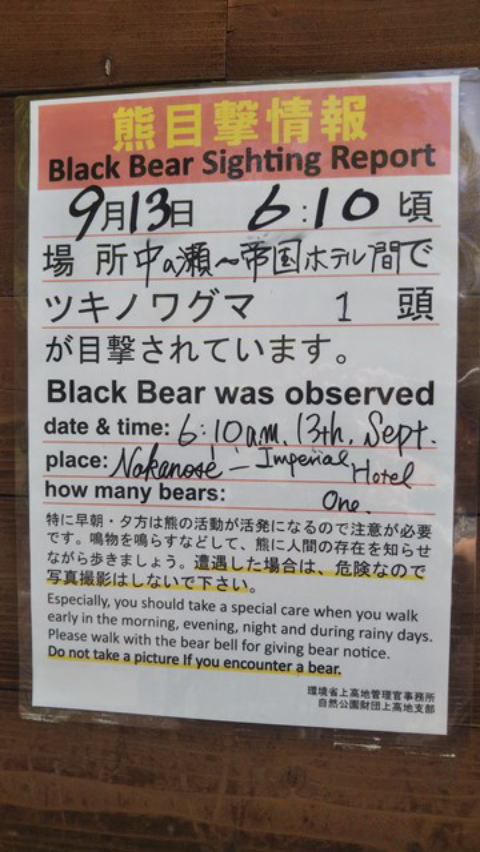 熊目撃情報
Black Bear Sighting Report
9月13日 6:10 頃
場 所 中の瀬〜帝国ホテル間で
ツキノワグマ 1 頭
が目撃されています。
Black Bear was observed
date & time: 6:10 a.m. 13th, Sept.
place: Nakanose – Imperial Hotel
how many bears: One.
特に早朝・夕方は熊の活動が活発になるので注意が必要
です。鳴物を鳴らすなどして、熊に人間の存在を知らせ
ながら歩きましょう。遭遇した場合は、危険なので
写真撮影はしないで下さい。
Especially, you should take a special care when you walk
early in the morning, evening, night and during rainy days.
Please walk with the bear bell for giving bear notice.
Do not take a picture If you encounter a bear.
環境省上高地管理官事務所
自然公園財団上高地支部